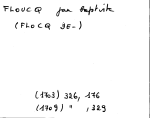 FLOUCQ Jean Baptiste
(FLOCQ DE-)
(1703) 326, 176
(1709) " , 329